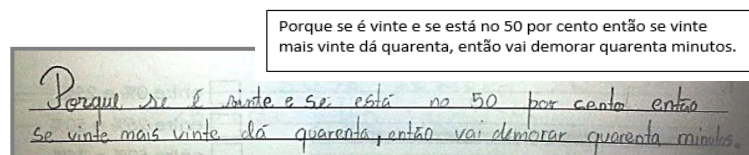 Porque se é vinte e se está no 50 por cento então se vinte
mais vinte dá quarenta, então vai demorar quarenta minutos.
Porque se é vinte e se está no 50 por cento então
se vinte mais vinte dá quarenta, então vai demorar quarenta minutos.